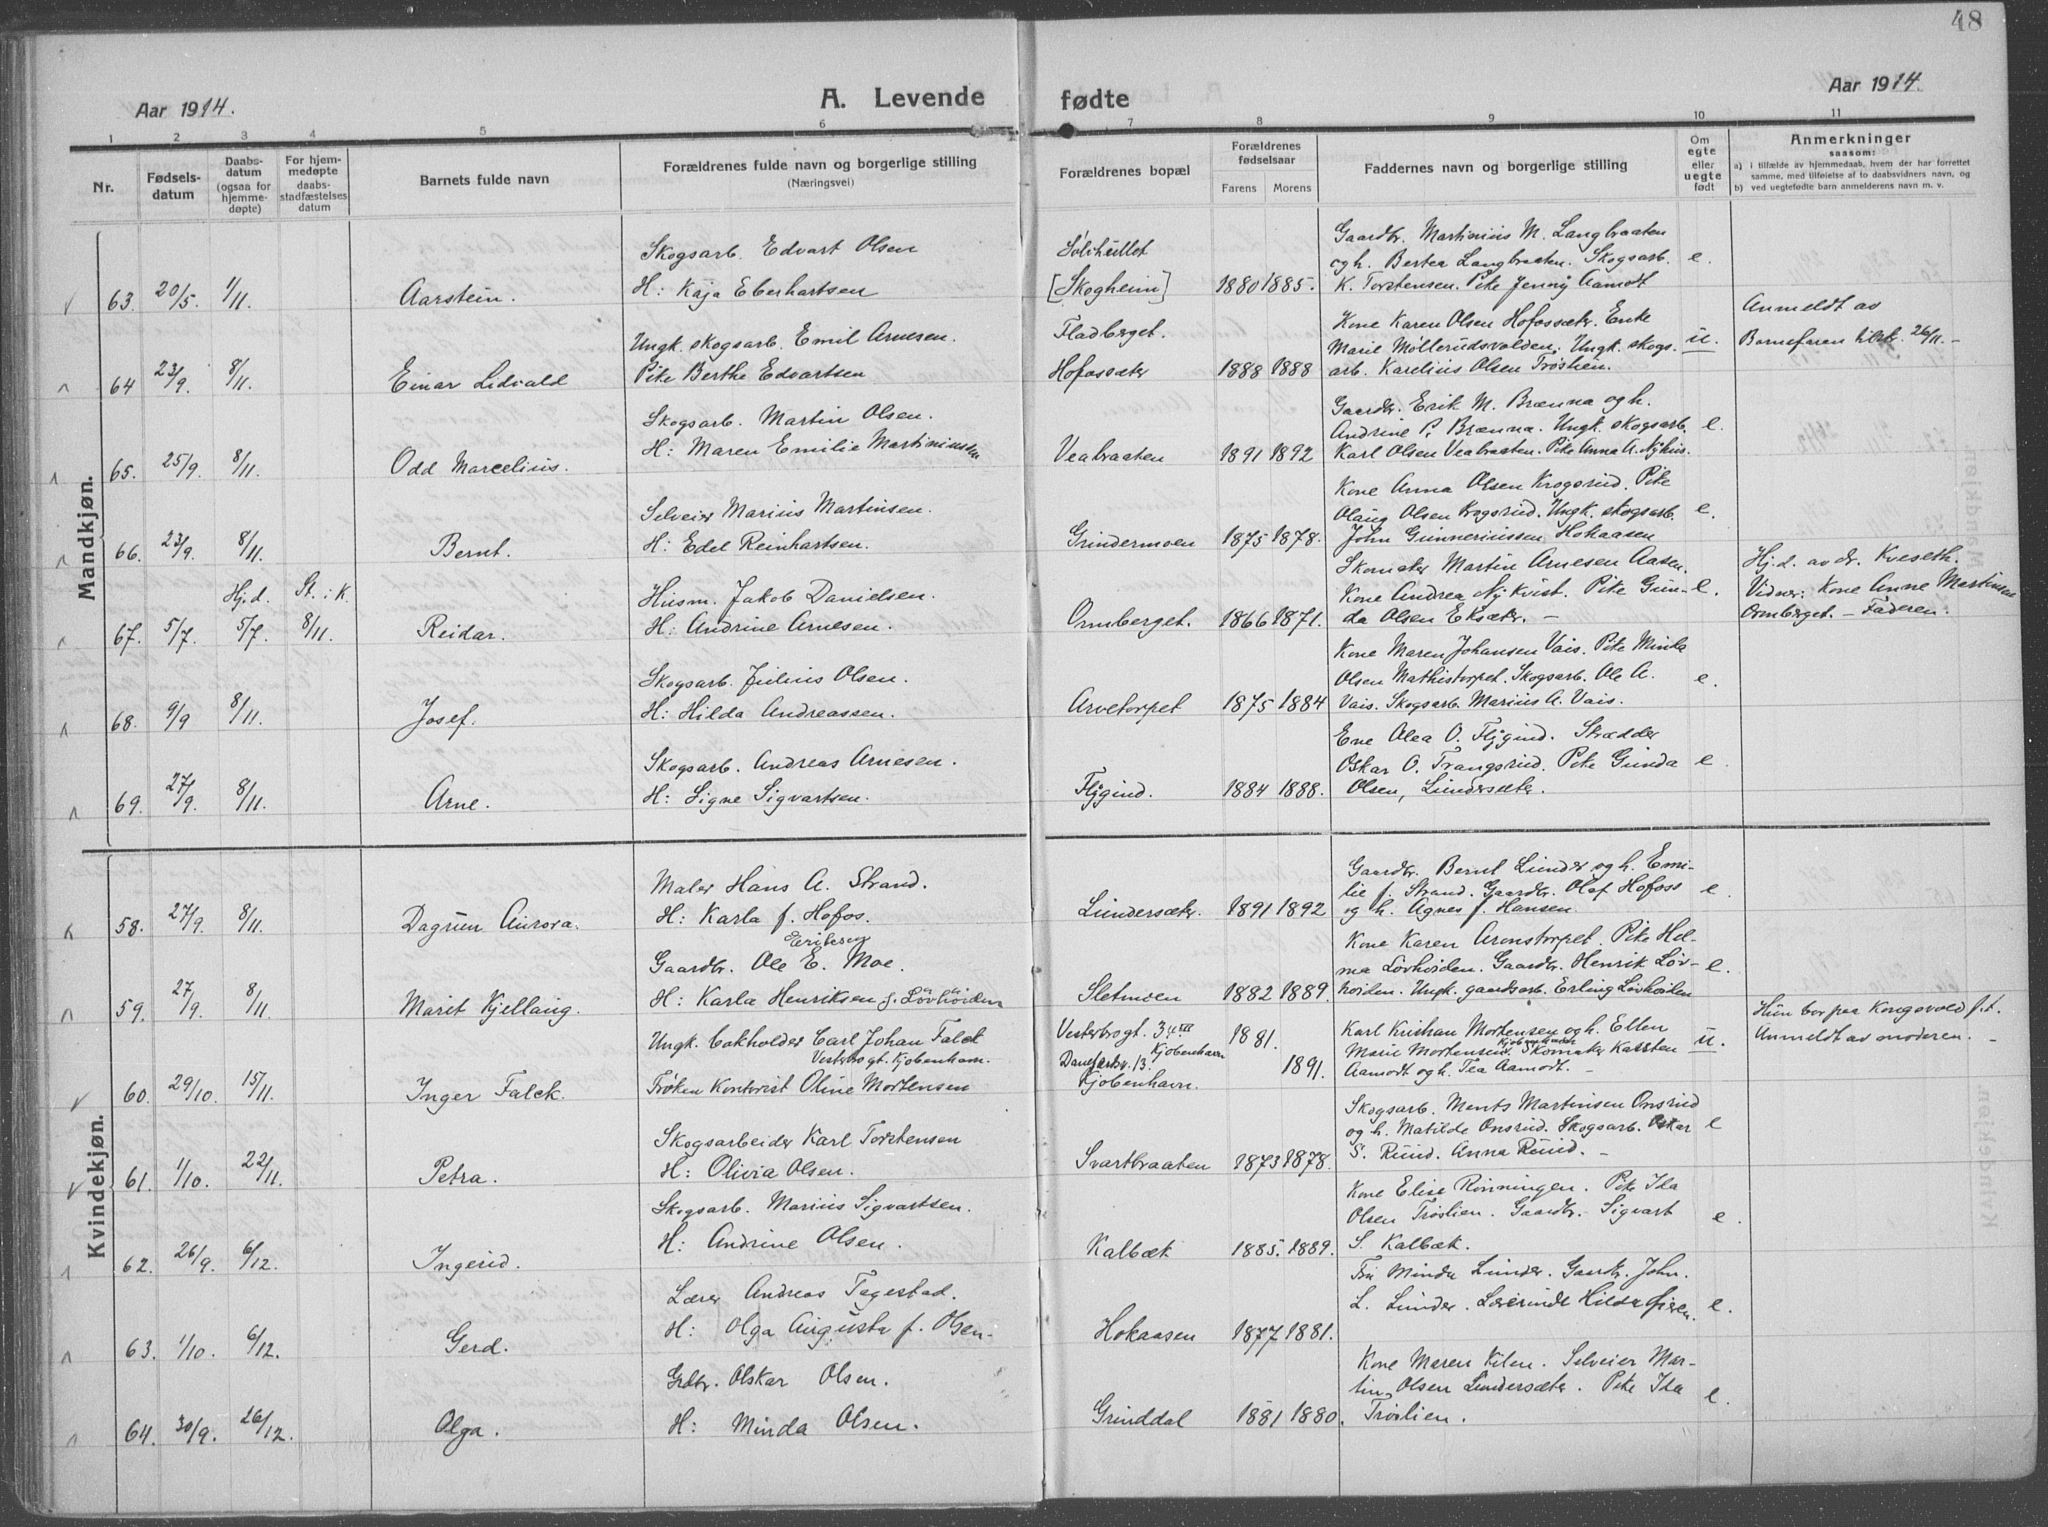 48
Aar 1914.
A. Levende fødte
Aar 1914.
1 2 3 4 5 6 7 8 9 10 11
Nr.
Fødsels-
datum
Daabs-
datum
(ogsaa for
hjemme-
døpte)
For hjem-
medøpte
daabs-
stadfæstelses
datum
Barnets fulde navn
Forældrenes fulde navn og borgerlige stilling
(Næringsvei)
Forældrenes bopæl
Forældrenes
fødselsaar
Farens Morens
Faddernes navn og borgerlige stilling
Om
egte
eller
uegte
født
Anmerkninger
saasom:
a) i tilfælde av hjemmedaab, hvem der har forrettet
samme, med tilføielse af to daabsvidners navn, og
b) ved uegtefødte barn anmelderens navn m. v.
Mandkjøn.
63. 20/5. 1/11. Aarstein.
Skogsarb. Edvart Olsen
H: Kaja Eberhartsen
[Skogheim] 1880 1885.
Gaardbr. Martinius M. Langbraaten
og h. Bertea Langbraaten. Skogsarb. e.
K. Torstensen. Pike Jenny Aamodt
64 23/9. 8/11. Einar Lidvald
Ungk. skogsarb. Emil Arnesen.
Pike Berthe Edvartsen
Fladberget.
Hofossæter 1888 1888
Kone Karen Olsen Hofossæter. Enke
Marie Møllerudsvolden. Ungk. skogs- u.
arb. Karelius Olsen Trøslien.
Anmeldt av
Barnefaren 26/11. -
65. 25/9. 8/11. Odd Marcelius.
Skogsarb. Martin Olsen.
H: Maren Emilie Martiniussen
Veabraaten 1891 1892
Gaardbr. Erik M. Brænna og h.
Andrine P. Brænna. Ungk. skogsarb. e.
Karl Olsen Veabraaten. Pike Anna A. Nyhus.
66. 23/9. 8/11. Bernt.
Selveier Marius Martinsen.
H: Edel Reinhartsen.
Grindermoen 1875 1878.
Kone Anna Olsen Krogsrud. Pike
Olaug Olsen Krogsrud. Ungk. skogsarb. e.
John Gunneriussen Hokaasen
Hj.d. St. i K.
67. 5/7. 5/7. 8/11. Reidar.
Husm. Jakob Danielsen.
H: Andrine Arnesen.
Ormberget. 1866 1871.
Skomaker Martin Arnesen Aasen.
Kone Andrea Nykvist. Pike Gun- e.
da Olsen Eksæter. -
Hj.d. av dr. Kveseth.
Vidner: Kone Anne Martinsen
Ormberget. - Faderen.
68. 9/9 8/11. Josef.
Skogsarb. Julius Olsen.
H: Hilda Andreassen.
Arvetorpet 1875 1884
Kone Maren Johansen Vais. Pike Minda
Olsen Mathistorpet. Skogsarb. Ole A. e.
Vais. Skogsarb. Marius A. Vais.
69. 27/9. 8/11. Arne.
Skogsarb. Andreas Arnesen.
H: Signe Sigvartsen.
Flygind. 1884 1888.
Alea O. Flygind. Skrædder
Oskar O. Trangsrud. Pike Gunda e.
Olsen, Lundersæter.
Kvindekjøn.
58. 27/9. 8/11. Dagrun Aurora.
Maler Hans A. Strand.
H: Karla f. Hofos.
Lundersæter. 1891 1892
Gaardbr. Bernt Lunder og h. Emi-
lie f. Strand. Gaardbr. Olaf Hofoss e.
og h. Agnes f. Hansen.
59. 27/9 8/11. Marit Kjellaug.
Eriksen
Gaardbr. Ole E. Moe.
H: Karla Henriksen f. Løvhøiden
Sletmoen 1882 1889.
Kone Karen Aronstorpet. Pike Hel-
ma Løvhøiden. Gaardbr. Henrik Løv- e.
høiden. Ungk. gaardsarb. Erling Løvhøiden
60. 29/10. 15/11. Inger Falck.
Ungk. bokholder Carl Johan Falck
Vesterbrogt. Kjøbenhavn.
Frøken Kontorist Oline Mortensen
Vesterbrogt. 34 III 1881.
Kjøbenhavn
13. 1891.
Kjøbenhavn.
Karl Kristian Mortensen og h. Ellen
Marie Mortensen. Skomaker Karsten u.
Aamodt og h. Tea Aamodt. -
Hun bor paa Kongsvold f.t.
Anmeldt av moderen. -
61. 1/10. 22/11. Petra.
Skogsarbeider Karl Torstensen
H: Olivia Olsen.
Svartbraaten 1873 1878.
Skogsarb. Ments Martinsen Onsrud
og h. Matilde Onsrud. Skogsarb. Oskar e
S. Ruud. Anna Ruud. -
62. 26/9. 6/12. Ingerid.
Skogsarb. Marius Sigvartsen.
H: Andrine Olsen.
Kalbæk 1885. 1889.
Kone Elise Rønningen. Pike Ida
Olsen Trøslien. Gaardbr. Sigvart e.
S. Kalbæk.
63. 1/10. 6/12. Gerd.
Lærer Andreas Fagestad.
H: Olga Augusta f. Olsen-
Hokaasen 1877 1881.
Fru Minda Lunder. Gaardbr. John.
L. Lunder. Lærerinde Hilda e.
64. 30/9. 26/12. Olga.
Grdbr. Olskar Olsen.
H: Minda Olsen.
Grinddal 1881 1880.
Kone Maren Kilen. Selveier Mar-
tin Olsen Lundersæter. Pike Ida e.
Trøslien.